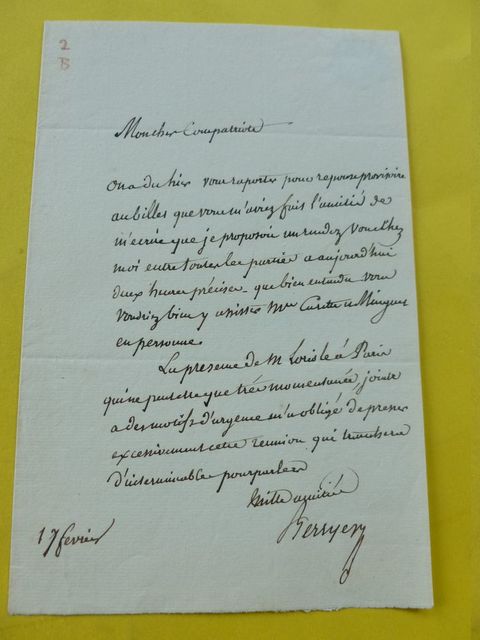 2
B
Mon cher Compatriote
On a du hier vous raporter pour reponse provisoire
au billes que vous m'aviez fais l'amitié de
m'ecrire que je proposois un rendez vous chez
moi entre toutes les parties a aujourd'hui
deux heures précises. que bien entendu vous
voudriez bien y assister Mrs et Minguet
en personne.
La presence de M à Paris
qui ne peut etre que très momentanée, jointe
a des motifs d'urgence m'a obligé de presser
excessivement cette reunion qui tranchera
d'interminables pourparlers
Mille amitiés
Berryer
17 fevrier